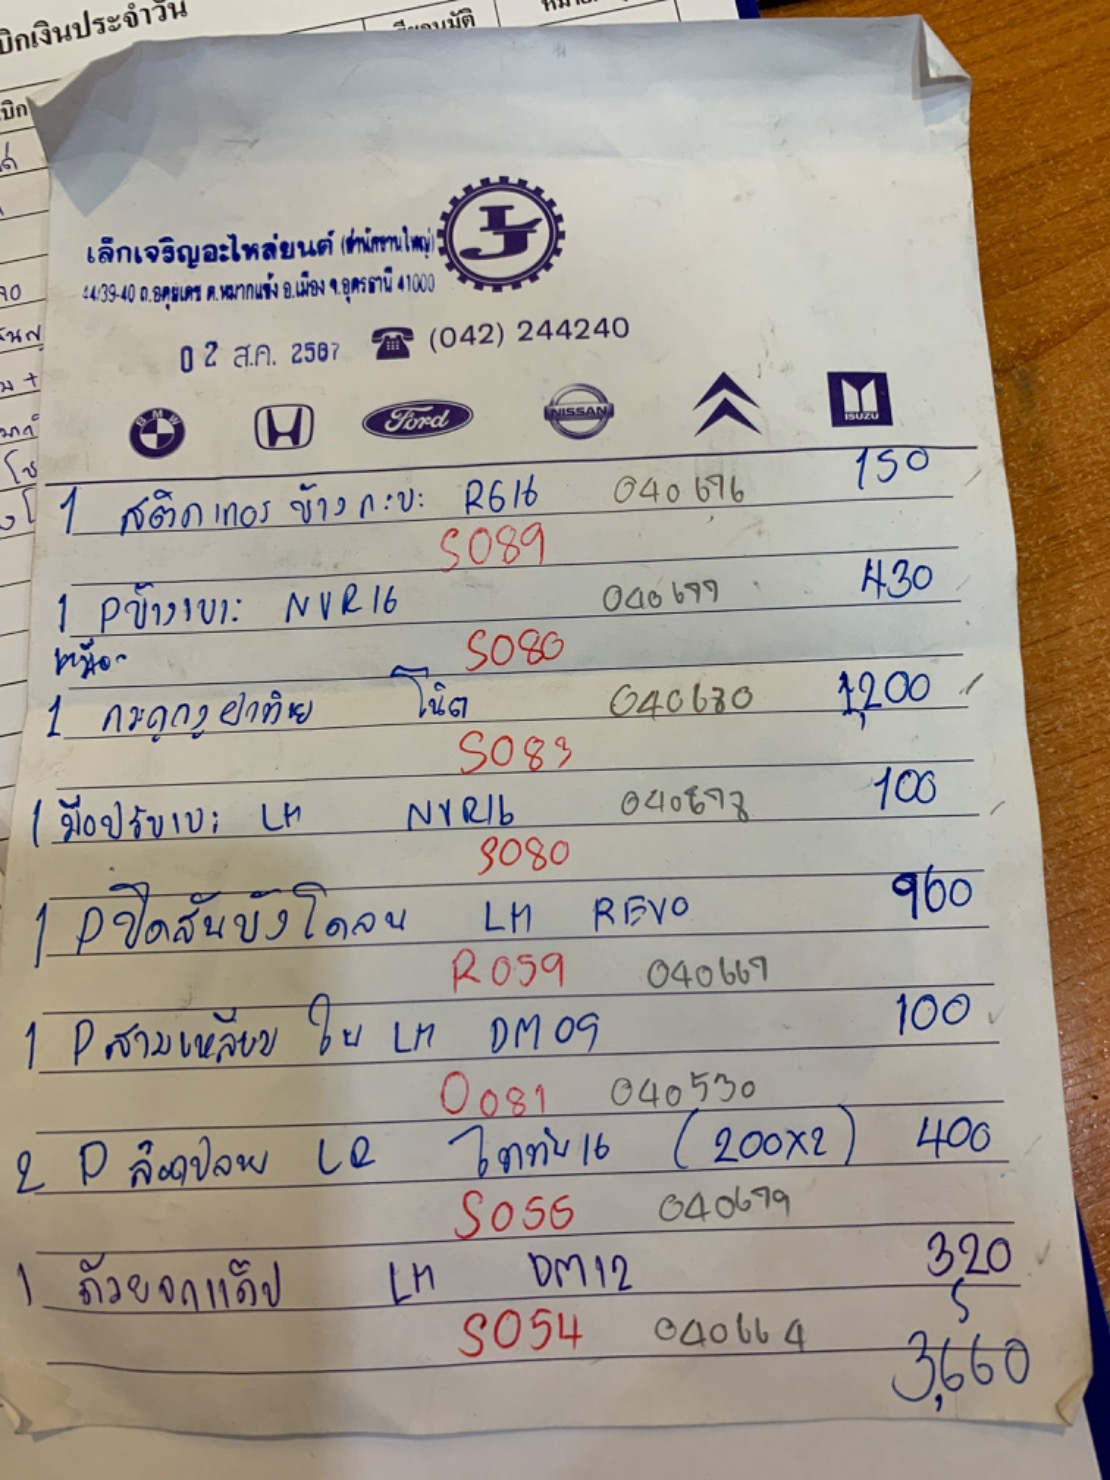 บิกเงินประจำวัน
เล็กเจริญอะไหล่ยนต์ (สำนักงานใหญ่)
44/39-40 ถ.อดุลยเดช ต.หมากแข้ง อ.เมือง จ.อุดรธานี 41000
LJ
02 ส.ค. 2567 (042) 244240
BMW Ford NISSAN ISUZU
1 สติกเกอร ข้างกะบะ RG16 040676 150
S089
1 Pข้างเบาะ NVR16 040677 430
S080
1 กะดูกงูฝาท้าย โนิต 040680 1,200
S083
1 มือปรับเบะ LH NVR16 040678 100
S080
1 Pปิดสันบังโคลน LH REVO 960
R059 040667
1 Pสามเหลี่ยม ใน LH DM09 100
O081 040530
2 P ล๊อคปลาย LR ไททัน16 (200x2) 400
S055 040679
1 ถ้วยจุกแค๊ป LH DM12 320
S054 040664
3,660